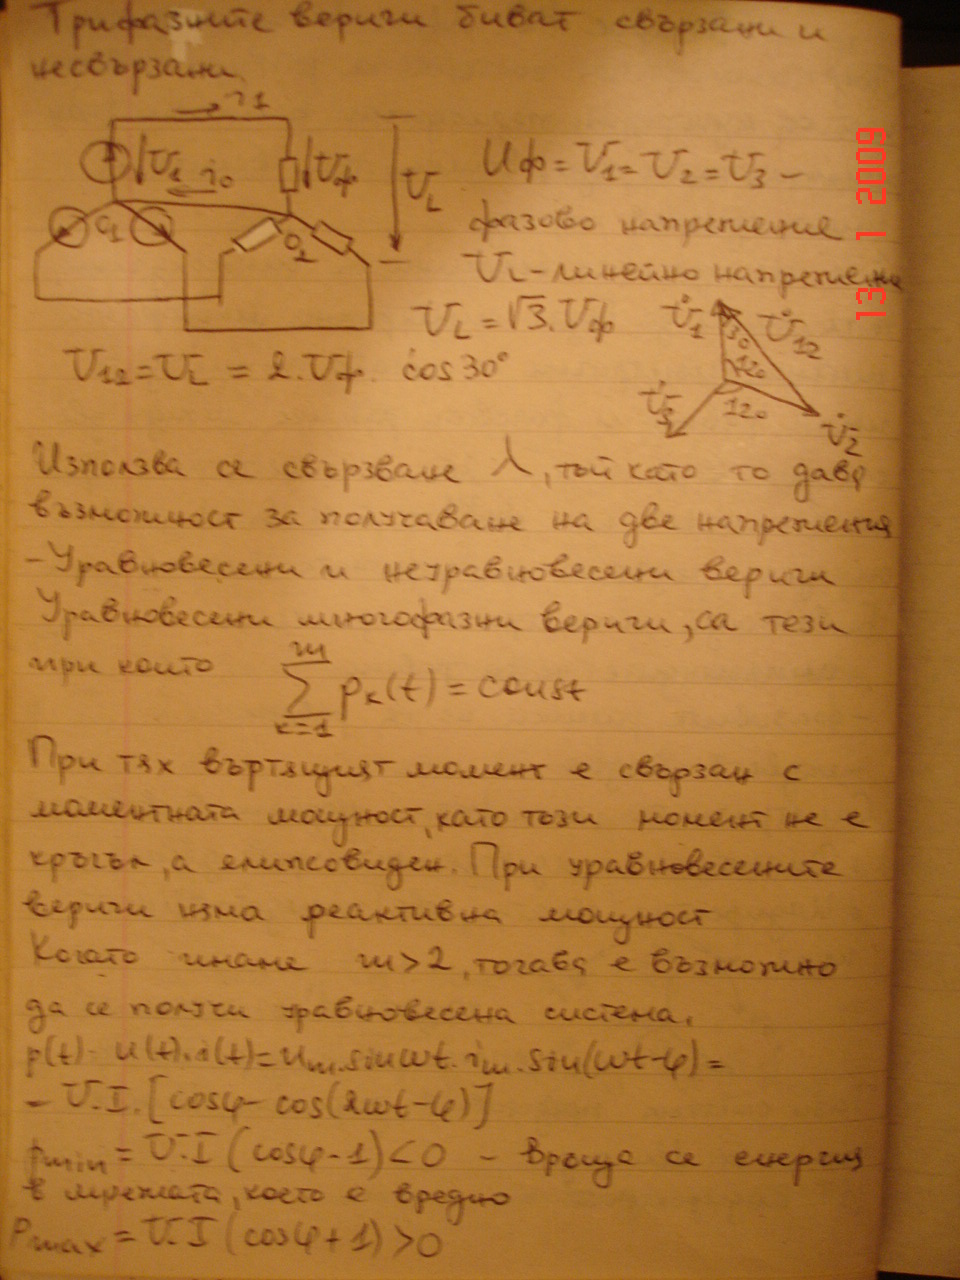 Трифазните вериги биват свързани и
несвързани.
i1
U1 i0 Uф UL
O1 O2
Uф = U1 = U2 = U3 -
фазово напрежение
UL - линейно напрежение
UL = √3. Uф
U̇1 30 U̇12
120
120
U̇3 U̇2
U12 = UL = 2. Uф. cos 30°
Използва се свързване ⅄, тъй като то дава
възможност за получаване на две напрежения
- Уравновесени и неуравновесени вериги
Уравновесени многофазни вериги, са тези
при които
m
∑ pк(t) = const
к=1
При тях въртящият момент е свързан с
моментната мощност, като този момент не е
кръгъл, а елипсовиден. При уравновесените
вериги няма реактивна мощност
Когато имаме m > 2, тогава е възможно
да се получи уравновесена система.
p(t) = u(t).i(t) = um.sinωt.im.sin(ωt-φ) =
= U.I.[cosφ - cos(2ωt-φ)]
pmin = U.I (cosφ-1) < 0 - Връща се енергия
в мрежата, което е вредно
Pmax = U.I (cosφ+1) > 0
13 1 2009